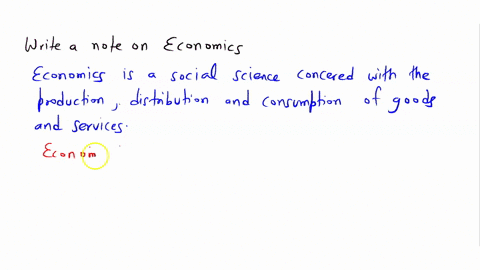 Write a note on Economics
Economics is a social science concered with the
production, distribution and consumption of goods
and services.
Econom